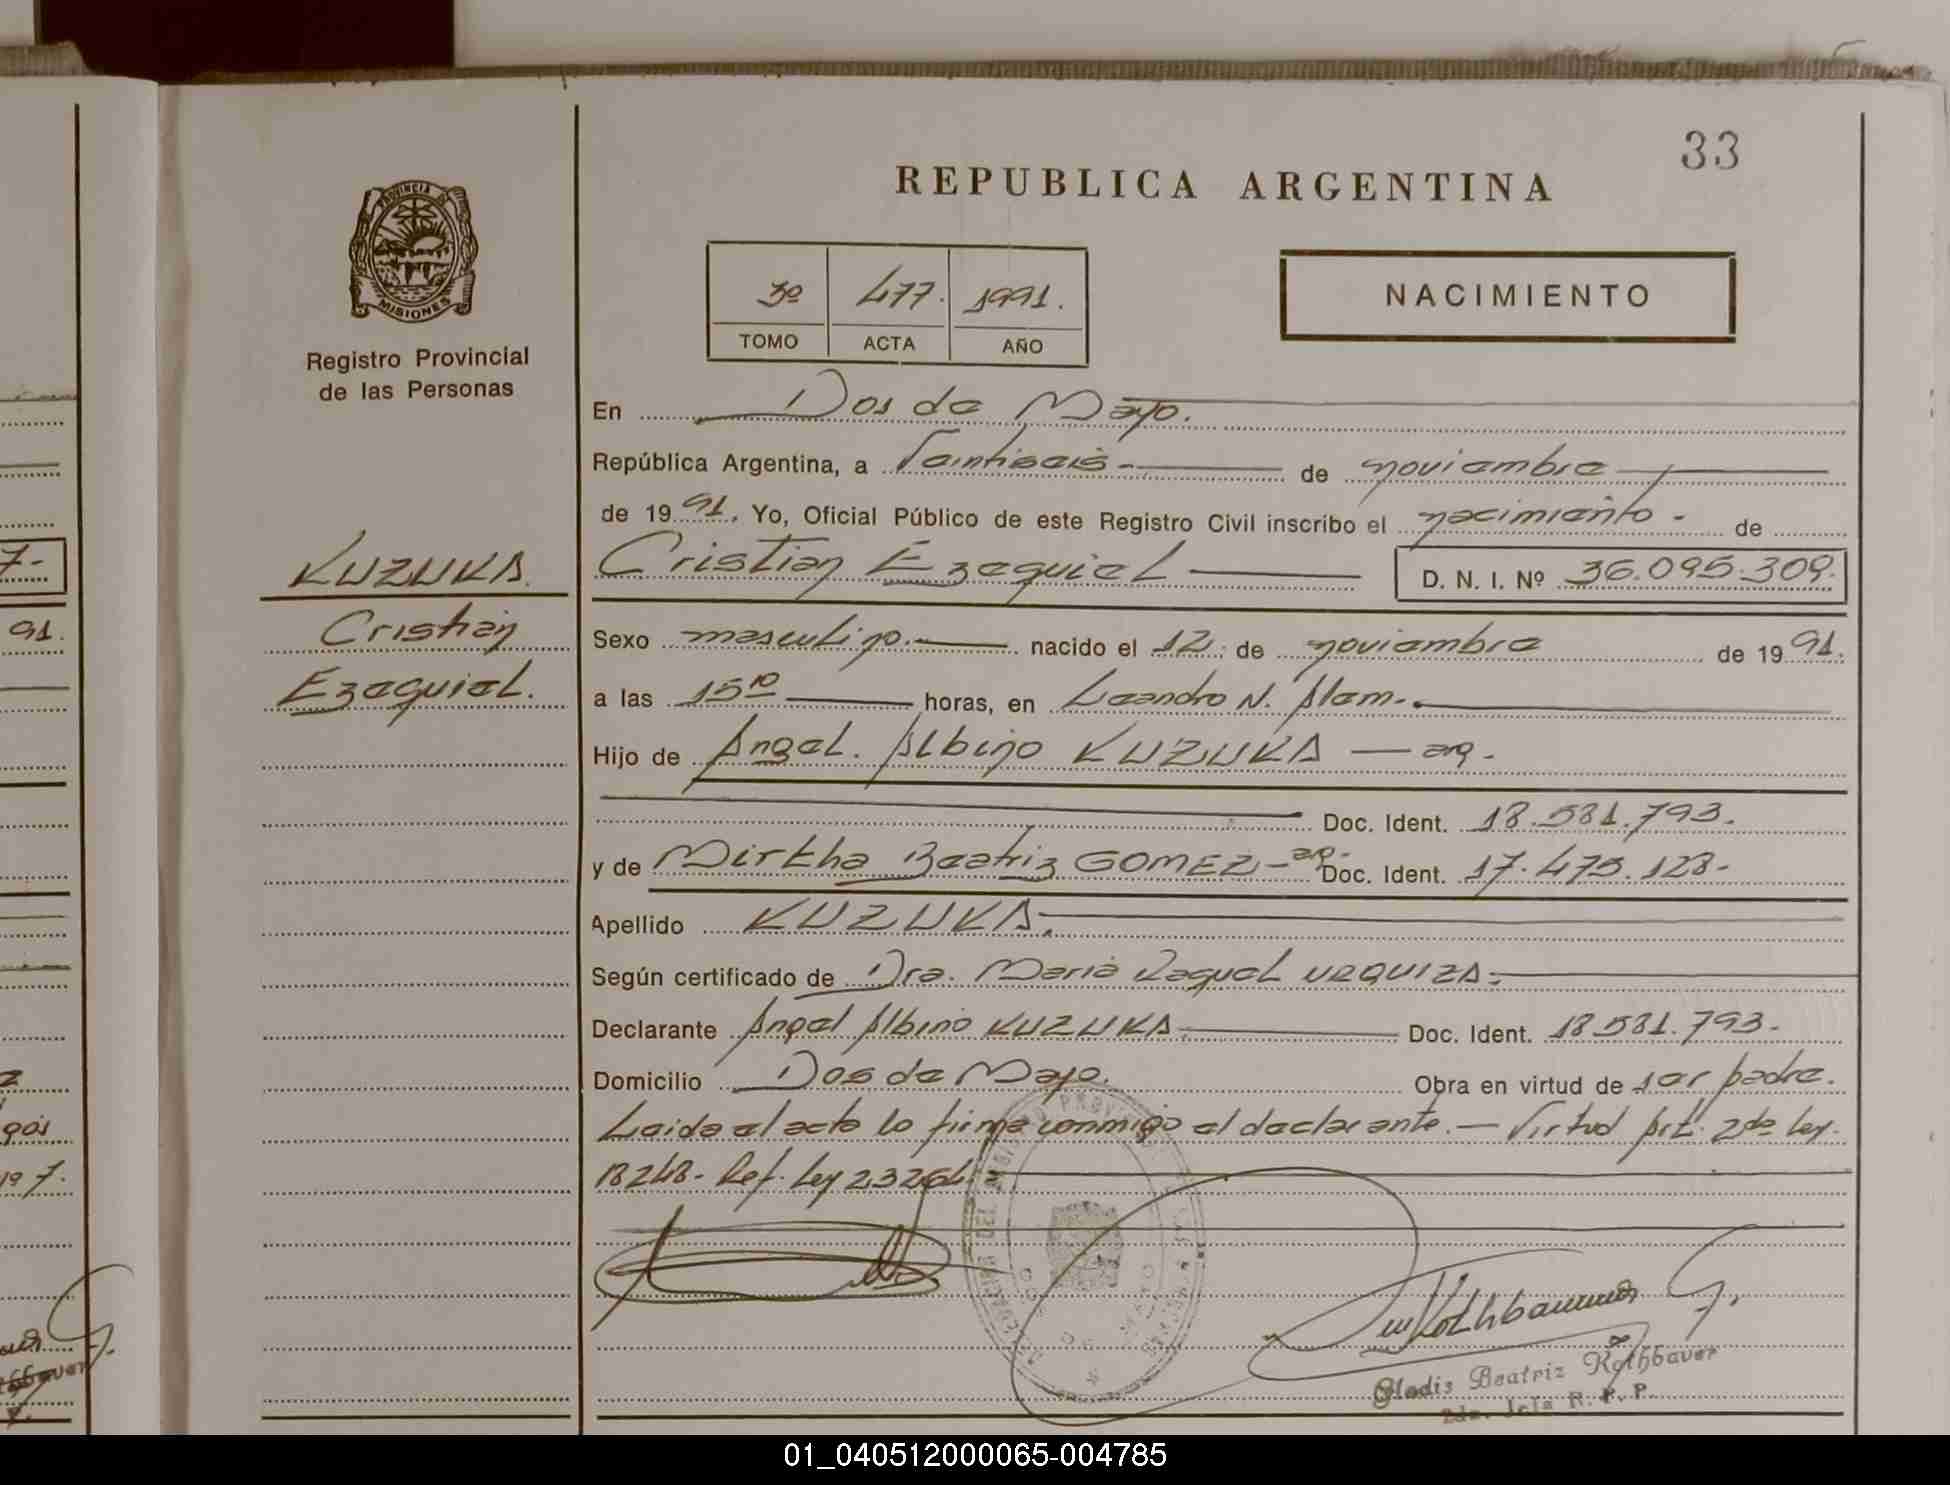 33
REPUBLICA ARGENTINA
PROVINCIA DE
MISIONES
Registro Provincial
de las Personas
3º 477. 1991.
TOMO ACTA AÑO
NACIMIENTO
En Dos de Mayo.
República Argentina, a Veintiseis - de noviembre
de 1991. Yo, Oficial Público de este Registro Civil inscribo el nacimiento - de
KUZUKA.
Cristian
Ezequiel.
Cristian Ezequiel D. N. I. Nº 36.095.309.
Sexo masculino. nacido el 12 de noviembre de 1991.
a las 15¹⁰ horas, en Leandro N. Alem.
Hijo de Angel. Albino KUZUKA — arg.
Doc. Ident. 18.581.793.
y de Mirtha Beatriz GOMEZ - arg. Doc. Ident. 17.475.128-
Apellido KUZUKA.
Según certificado de Dra. Maria Raquel URQUIZA.
Declarante Angel Albino KUZUKA Doc. Ident. 18.581.793-
Domicilio Dos de Mayo. Obra en virtud de ser padre.
Leida el acta lo firma conmigo el declarante. — Virtud Art. 2do Ley.
18248- Ref. Ley 23264
Gladis Beatriz Rothbauer
2da. Jefa R. P. P.
7-
91.
01_040512000065-004785